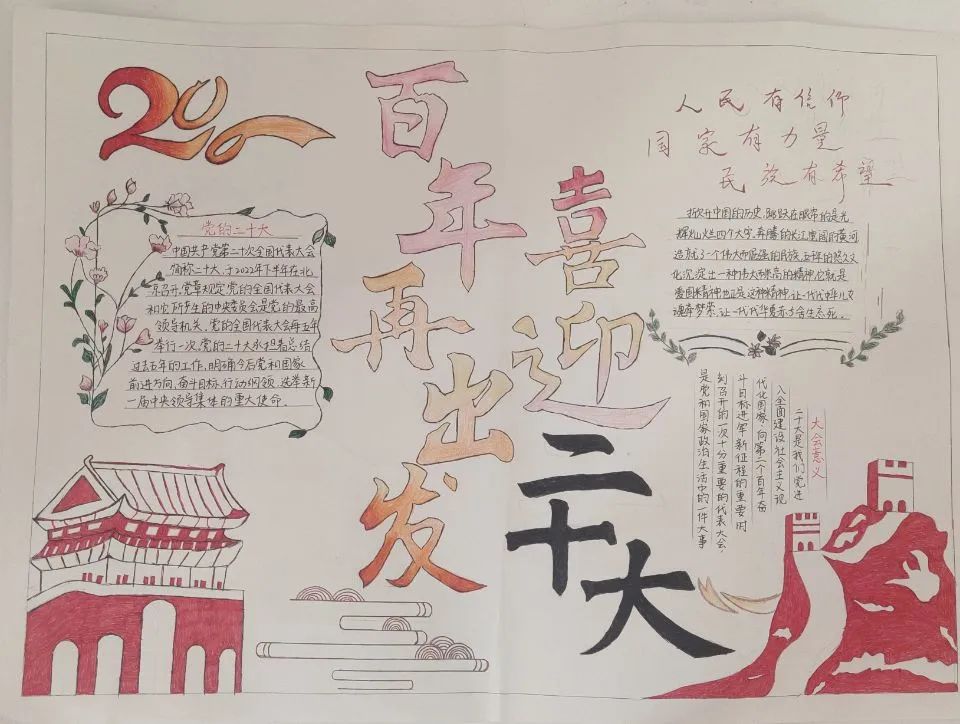 20
百年再出发
喜迎
二十大
人民有信仰
国家有力量
民族有希望
党的二十大
中国共产党第二十次全国代表大会
简称二十大,于2022年下半年在北
京召开,党章规定党的全国代表大会
和它所产生的中央委员会是党的最高
领导机关,党的全国代表大会每五年
举行一次,党的二十大承担着总结
过去五年的工作,明确今后党和国家
前进方向,奋斗目标,行动纲领,选举新
一届中央领导集体的重大使命.
打开中国的历史,跳跃在眼帘的是光
辉灿烂四个大字,奔腾的长江,雄固的黄河
造就了一个伟大而倔强的民族,五千年的悠久文
化沉淀出一种伟大而崇高的精神,它就是
爱国精神也正是这种精神,让一代代中华儿女
魂牵梦萦,让一代代华夏赤子舍生忘死.
大会意义
二十大是我们党进
入全面建设社会主义现
代化国家,向第二个百年奋
斗目标进军新征程的重要时
刻召开的一次十分重要的代表大会,
是党和国家政治生活中的一件大事